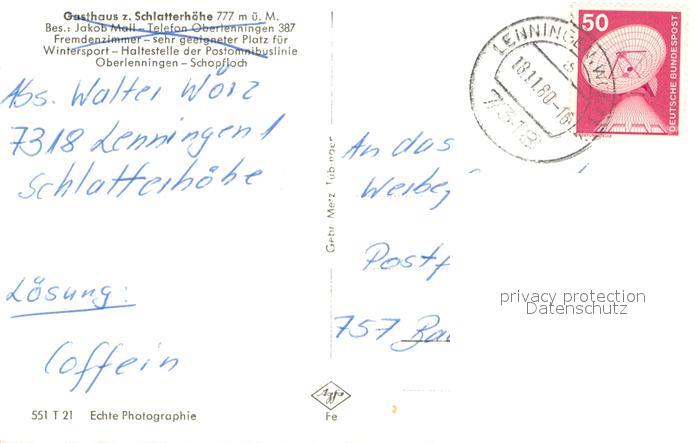 Gasthaus z. Schlatterhöhe 777 m ü. M.
Bes.: Jakob Moll – Telefon Oberlenningen 387
Fremdenzimmer – sehr geeigneter Platz für
Wintersport – Haltestelle der Postomnibuslinie
Oberlenningen – Schopfloch
Abs. Walter Wörz
7318 Lenningen 1
Schlatterhöhe
Lösung:
Coffein
551 T 21 Echte Photographie
Gebr. Metz Tübingen
Agfa
Fe
LENNINGEN, W
18.11.80-16
7318
50
DEUTSCHE BUNDESPOST
An das
Werbe
Postf
757 Ba
privacy protection
Datenschutz